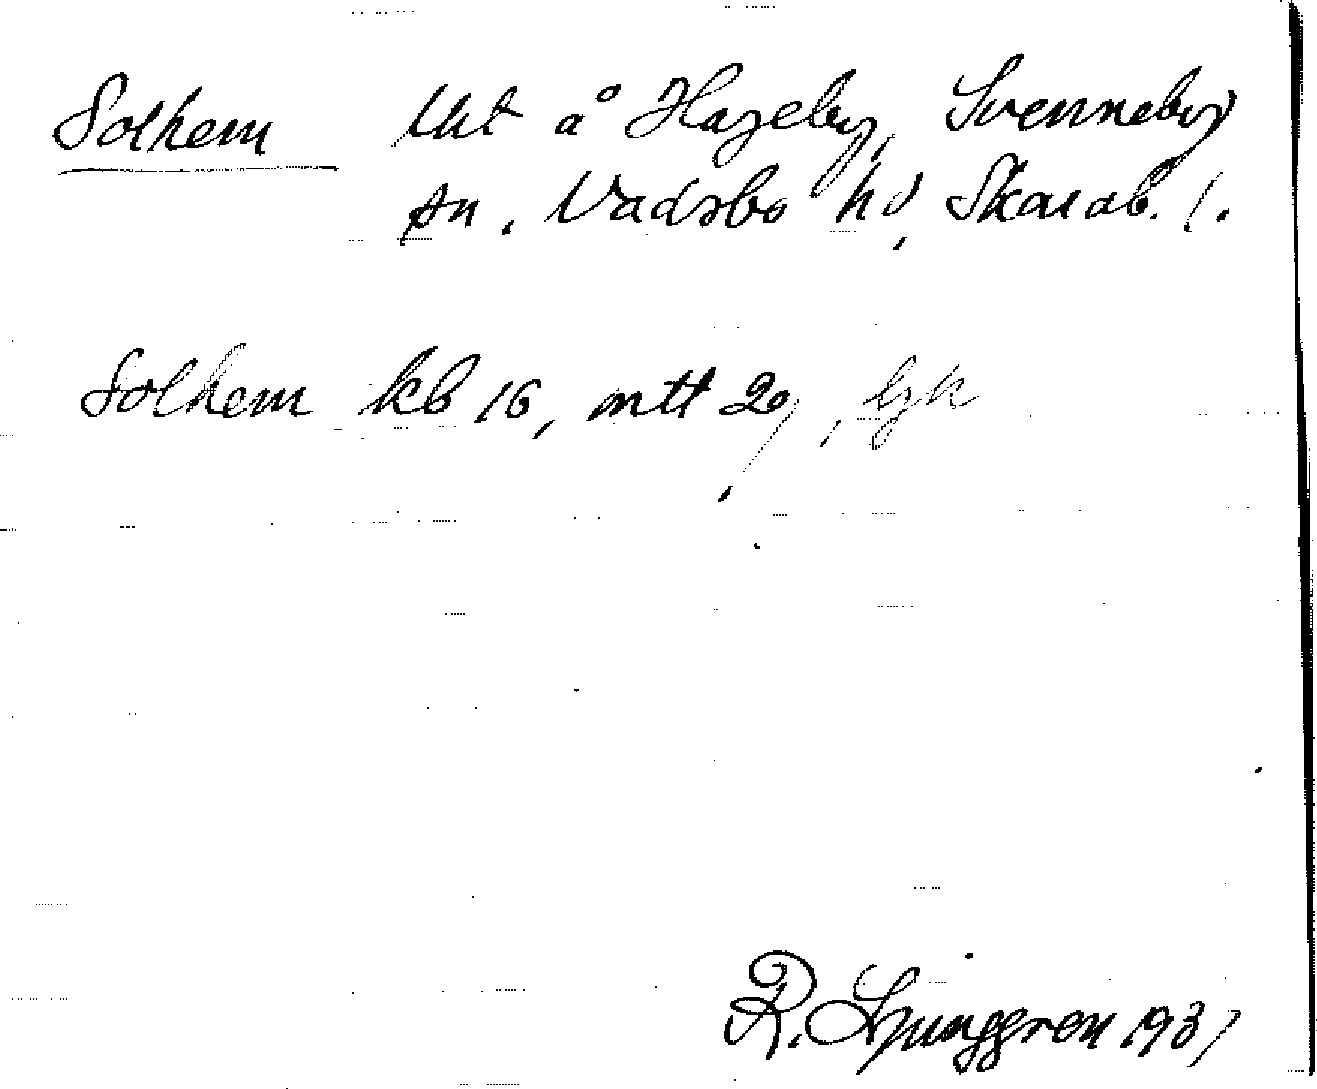 Solhem Uht å Hageby, Svenneby
sn. Vadsbo hd, Skarab. l.
Solhem kb 16, mtt 20, lgh
R. Ljunggren 1937